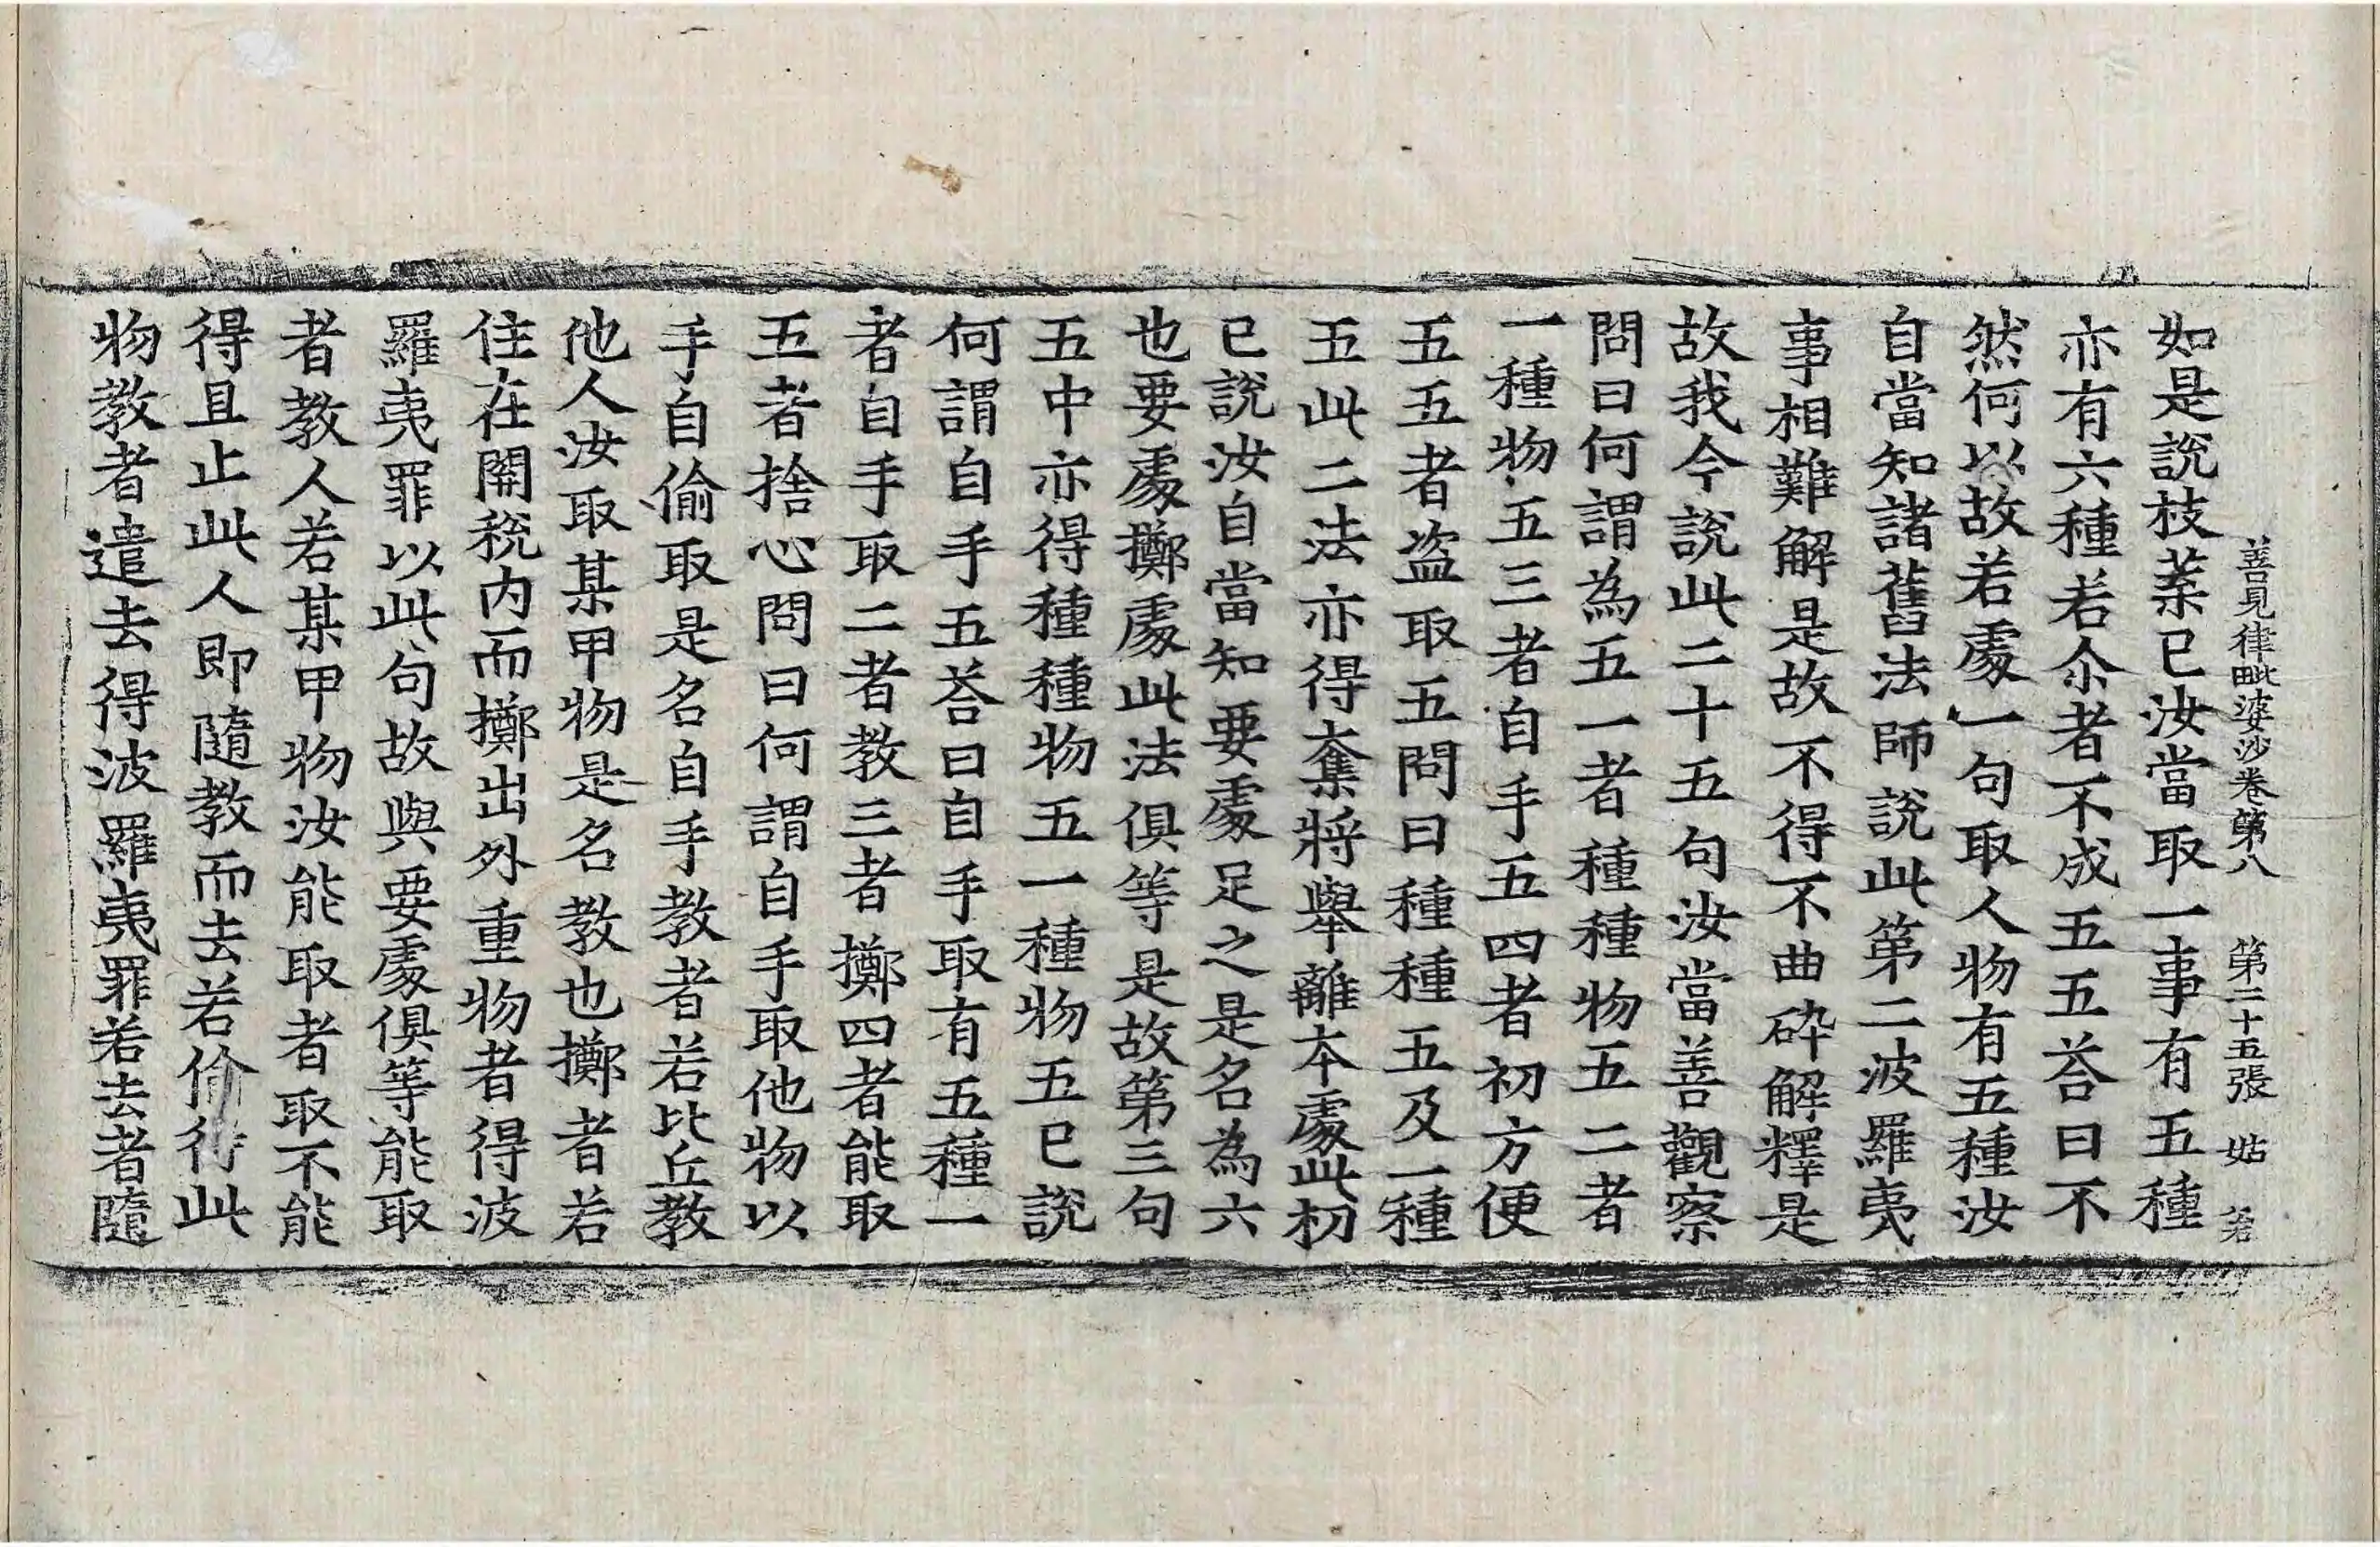 善見律毗婆沙卷第八　第二十五張　姑
如是說枝葉已汝當取一事有五種
亦有六種若尒者不成五五荅曰不
然何以故若處一句取人物有五種汝
自當知諸舊法師說此第二波羅夷
事相難解是故不得不曲碎解釋是
故我今說此二十五句汝當善觀察
問曰何謂為五一者種種物五二者
一種物五三者自手五四者初方便
五五者盜取五問曰種種五及一種
五此二法亦得奪將舉離本處此初
已說汝自當知要處足之是名為六
也要處擲處此法俱等是故第三句
五中亦得種種物五一種物五已說
何謂自手五荅曰自手取有五種一
者自手取二者教三者擲四者能取
五者捨心問曰何謂自手取他物以
手自偷取是名自手教者若比丘教
他人汝取某甲物是名教也擲者若
住在關稅內而擲出外重物者得波
羅夷罪以此句故與要處俱等能取
者教人若某甲物汝能取者取不能
得且止此人即隨教而去若偷得此
物教者遣去得波羅夷罪若去者隨